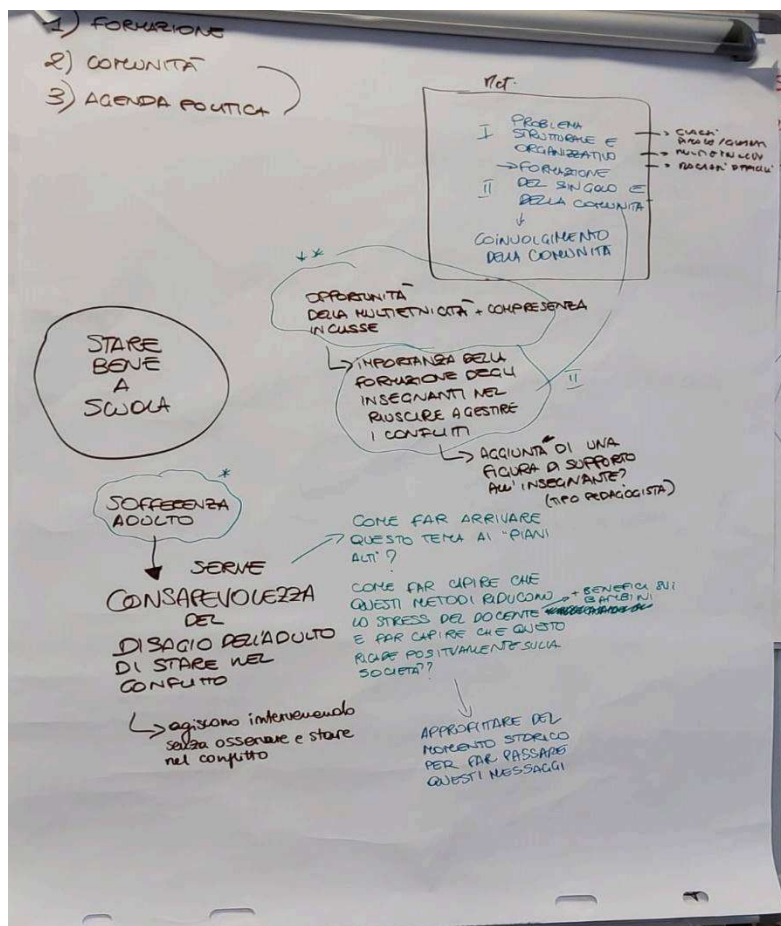 1) FORMAZIONE
2) COMUNITÀ
3) AGENDA POLITICA
I PROBLEMA
STRUTTURALE E
ORGANIZZATIVO
→ FORMAZIONE
II DEL SINGOLO E
DELLA COMUNITÀ
↓
COINVOLGIMENTO
DELLA COMUNITÀ
**
OPPORTUNITÀ
DELLA MULTIETNICITÀ + COMPRESENZA
IN CLASSE
IMPORTANZA DELLA
FORMAZIONE DEGLI
INSEGNANTI NEL
RIUSCIRE A GESTIRE
I CONFLITTI
II
AGGIUNTA DI UNA
FIGURA DI SUPPORTO
ALL'INSEGNANTE?
(TIPO PEDAGOGISTA)
STARE
BENE
A
SCUOLA
*
SOFFERENZA
ADULTO
SERVE
CONSAPEVOLEZZA
DEL
DISAGIO DELL'ADULTO
DI STARE NEL
CONFLITTO
agiscono intervenendo
senza osservare e stare
nel conflitto
COME FAR ARRIVARE
QUESTO TEMA AI "PIANI
ALTI"?
COME FAR CAPIRE CHE
QUESTI METODI RIDUCONO
LO STRESS DEL DOCENTE
+ BENEFICI SUI
BAMBINI
E FAR CAPIRE CHE QUESTO
RICADE POSITIVAMENTE SULLA
SOCIETÀ?
APPROFITTARE DEL
MOMENTO STORICO
PER FAR PASSARE
QUESTI MESSAGGI